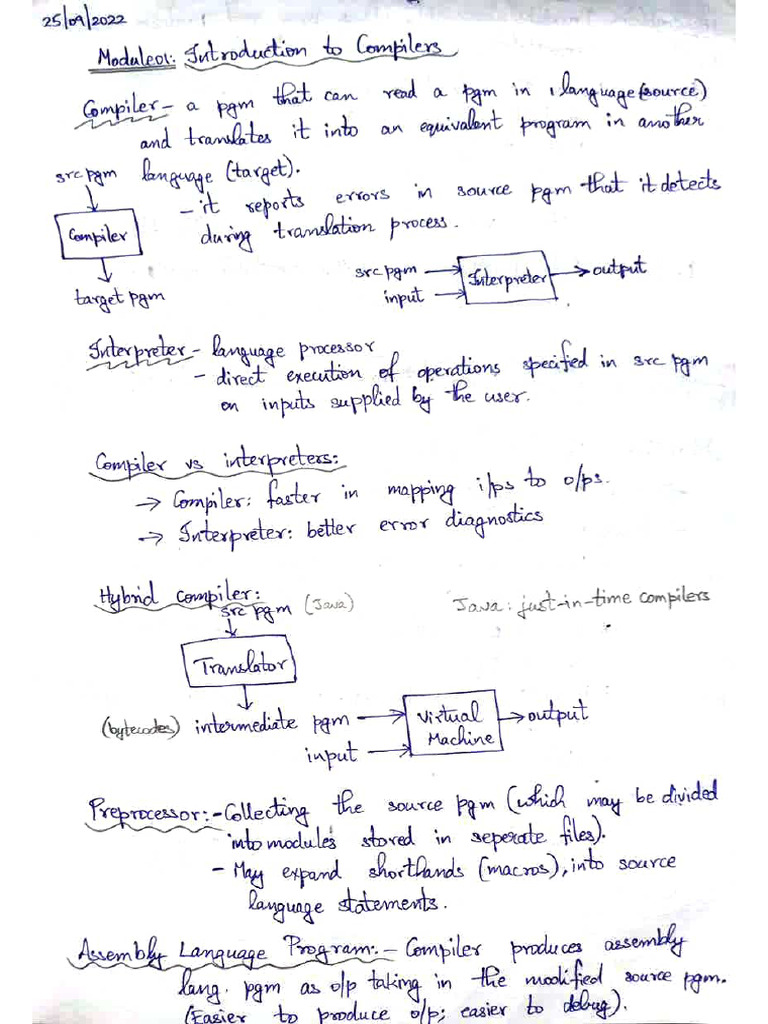 25/09/2022
Module01: Introduction to Compilers
Compiler - a pgm that can read a pgm in 1 language (source)
and translates it into an equivalent program in another
language (target).
src pgm
- it reports errors in source pgm that it detects
during translation process.
Compiler
target pgm
src pgm
input
Interpreter
output
Interpreter - language processor
- direct execution of operations specified in src pgm
on inputs supplied by the user.
Compiler vs interpreters:
→ Compiler: faster in mapping i/ps to o/ps.
→ Interpreter: better error diagnostics
Hybrid compiler:
src pgm (Java)
Java: just-in-time compilers
Translator
(bytecodes) intermediate pgm
input
Virtual
Machine
output
Preprocessor: - Collecting the source pgm (which may be divided
into modules stored in seperate files).
- May expand shorthands (macros), into source
language statements.
Assembly Language Program: - Compiler produces assembly
lang. pgm as o/p taking in the modified source pgm.
(Easier to produce o/p; easier to debug).